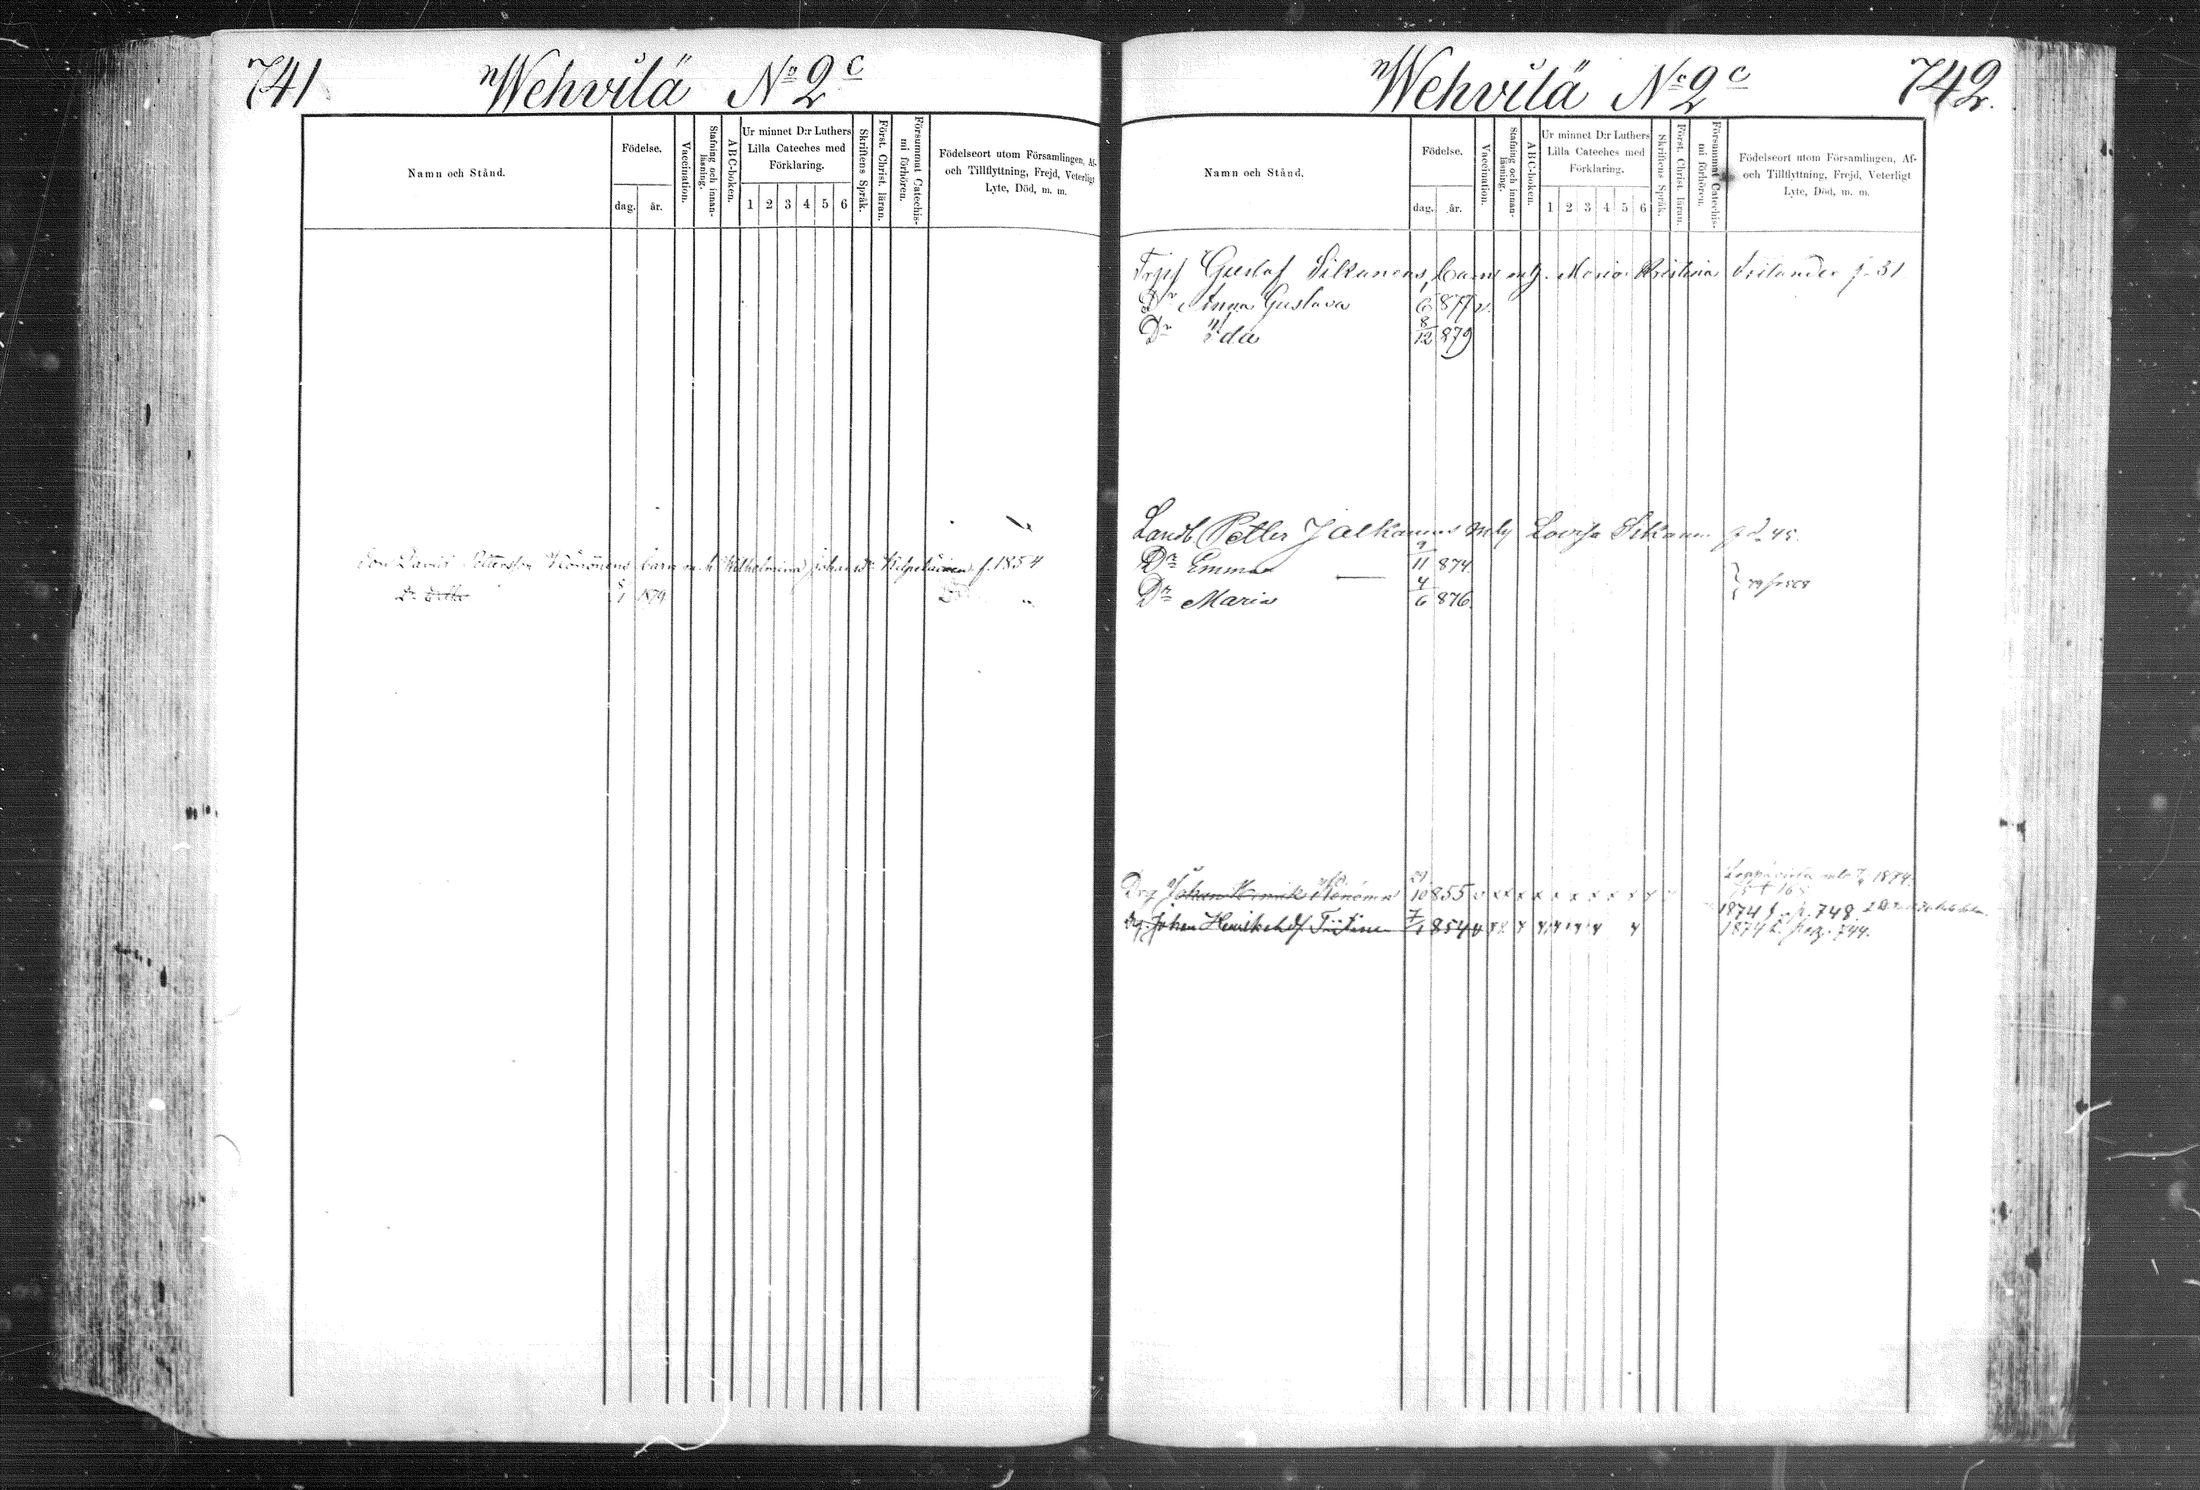 741 Wehvilä No 2 c
Namn och Stånd.
Födelse.
dag. år.
Vaccination.
Stafning och innan-
läsning.
ABC-boken.
Ur minnet D:r Luthers
Lilla Cateches med
Förklaring.
1 2 3 4 5 6
Skriftens Språk.
Först. Christ. läran.
Försummat Catechis-
mi förhören.
Födelseort utom Församlingen, Af-
och Tillflyttning, Frejd, Veterligt
Lyte, Död, m. m.
Son David Pettersson Könönens barn m. h. Wilhelmina Johansdr Kilpeläinen f. 1854
Dr 1879
Wehvilä No 2 c 742.
Namn och Stånd.
Födelse.
dag. år.
Vaccination.
Stafning och innan-
läsning.
ABC-boken.
Ur minnet D:r Luthers
Lilla Cateches med
Förklaring.
1 2 3 4 5 6
Skriftens Språk.
Först. Christ. läran.
Försummat Catechis-
mi förhören.
Födelseort utom Församlingen, Af-
och Tillflyttning, Frejd, Veterligt
Lyte, Död, m. m.
Gustaf Silkanens barn m. h. Maria Kristina f. 31
Dr Anna Gustava 6 877 v.
Dr Ida 8/12 879
Landb. Petter Jalkanens m. h. Lovisa f. d. 45.
Dr Emma 9/11 874.
Dr Maria 4/6 876.
Drg Johan Könönen 10 855 v x x x x x x x x x x
1874 f. p. 748.
Drg. Johan Henrik Tiitinen 7/1 854 v
1874 f. pag. 744.